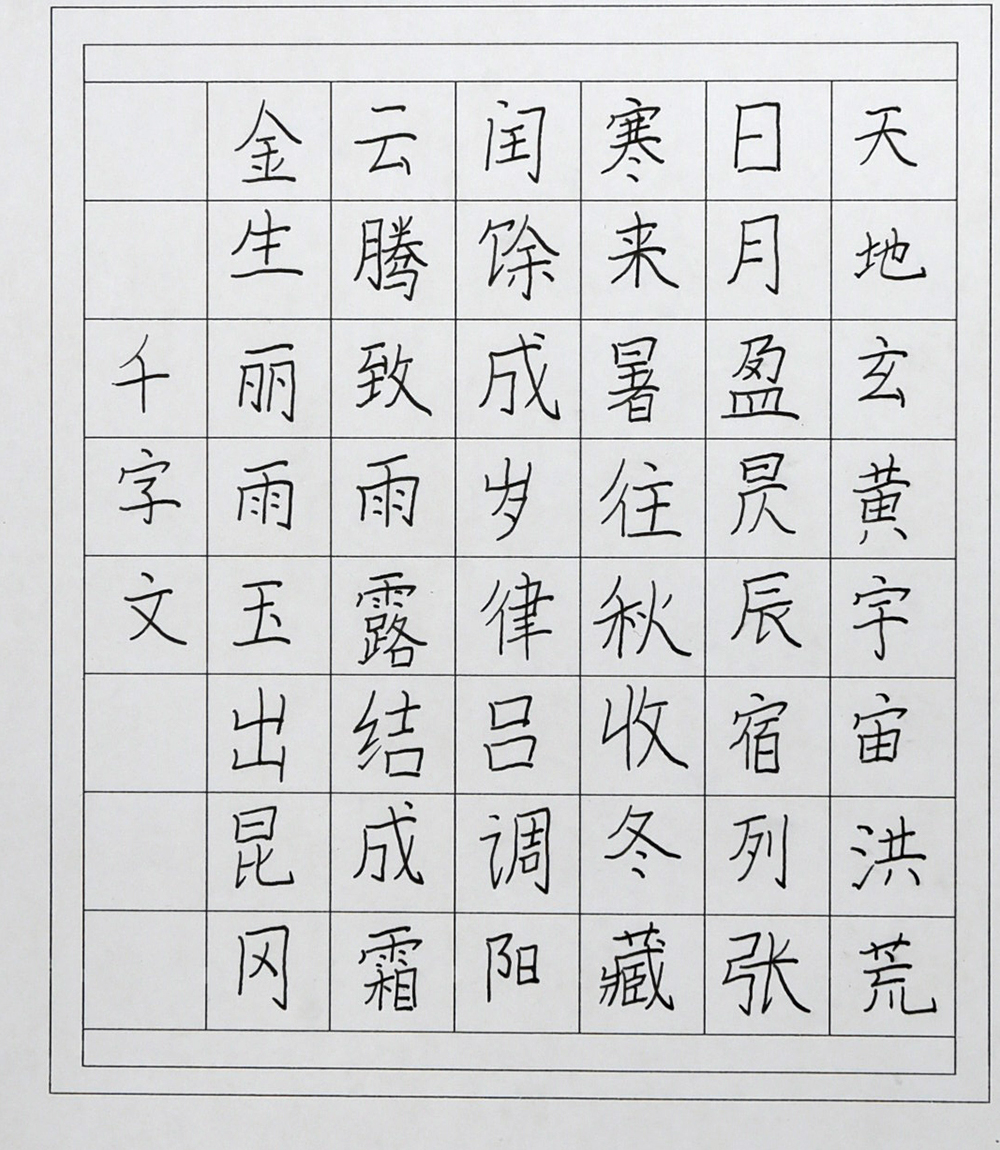 天地玄黄宇宙洪荒
日月盈昃辰宿列张
寒来暑往秋收冬藏
闰馀成岁律吕调阳
云腾致雨露结成霜
金生丽雨玉出昆冈
千字文